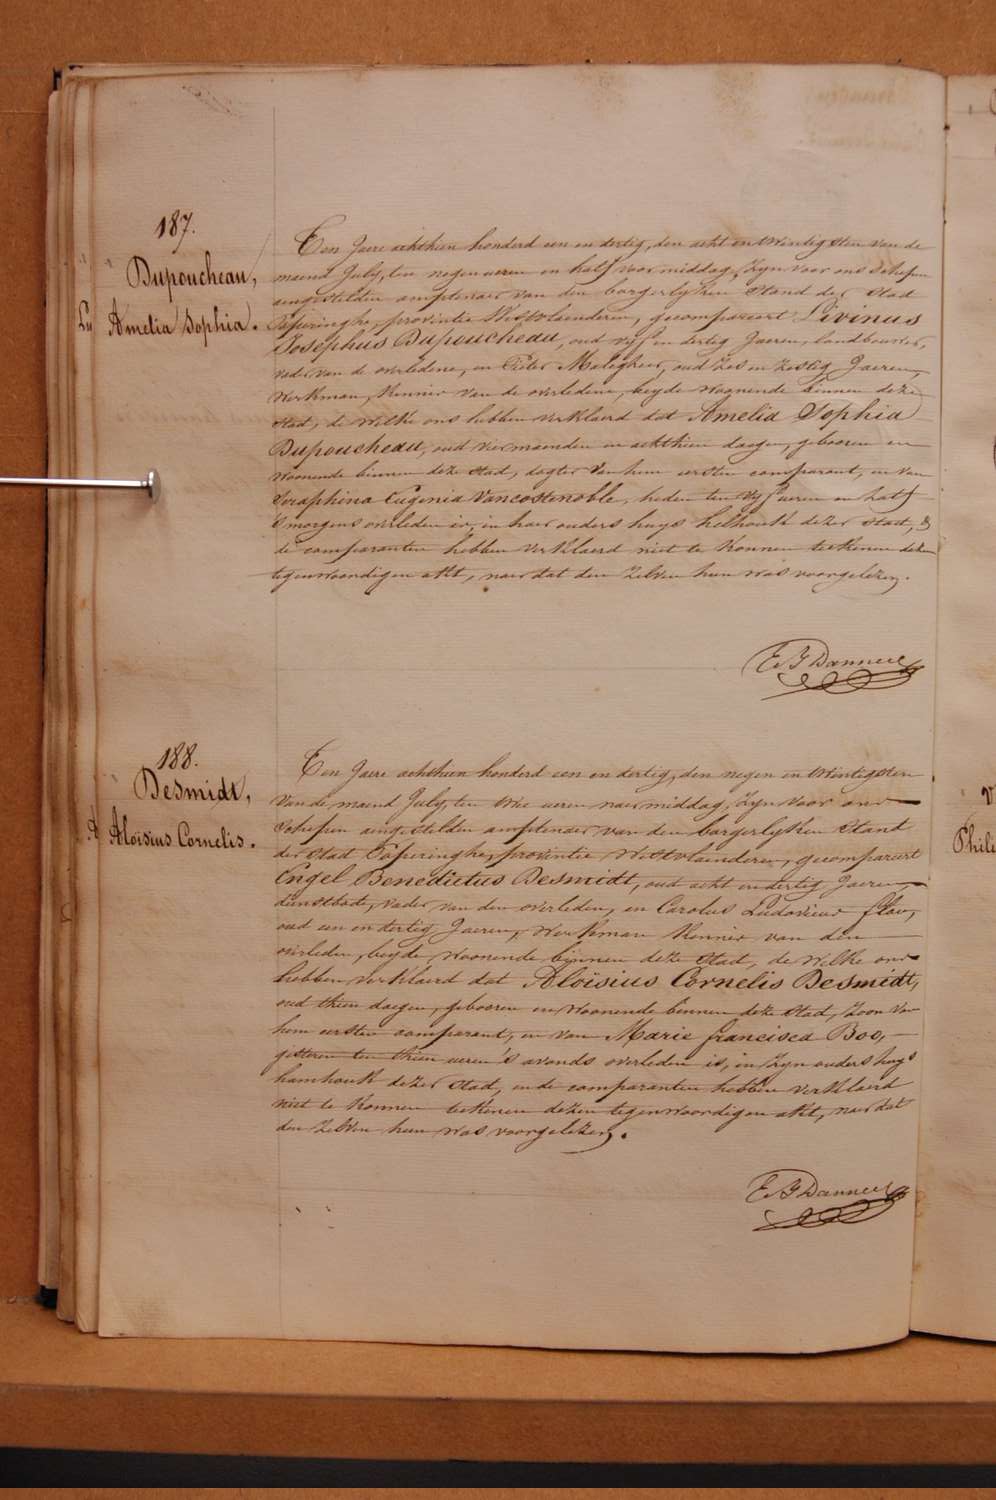 187.
Dupoucheau,
Amelia Sophia.
Een Jaere achthien honderd een en dertig, den acht en twintigsten van de
maend July, ten negen ueren en half voormiddag, zyn voor ons Schepen
aengestelden amptenaer van den borgerlyken Stand der Stad
Poperinghe, provintie Westvlaenderen, gecompareert Livinus
Josephus Dupoucheau, oud vyf en dertig Jaeren, landbouwer,
vader van de overledene, en Pieter oud zes en zestig Jaeren,
werkman, kennis van de overledene, beyde woonende binnen deze
stad, de welke ons hebben verklaerd dat Amelia Sophia
Dupoucheau, oud vier maenden en achthien daegen, gebooren en
woonende binnen deze stad, dogter van hun eersten comparant, en van
Seraphina Eugenia Vancostenoble, heden ten vyf ueren en half
's morgens overleden is, in haer ouders huys helhoukt dezer stad, &
de comparanten hebben verklaerd niet te konnen teekenen dezen
tegenwoordigen akt, naer dat den zelven hun was voorgelezen.
E. J. Danneel
188.
Desmidt,
Aloïsius Cornelis.
Een Jaere achthien honderd een en dertig, den negen en twintigsten
van de maend July, ten twee ueren naermiddag, zyn voor ons
Schepen aengestelden amptenaer van den borgerlyken Stand
der Stad Poperinghe, provintie Westvlaenderen, gecompareert
Engel Benedictus Desmidt, oud acht en dertig Jaeren,
dienstbode, vader van den overleden, en Carolus Ludovicus flou,
oud een en dertig Jaeren, werkman kennis van den
overleden, beyde woonende binnen deze stad, de welke ons
hebben verklaerd dat Aloïsius Cornelis Desmidt,
oud thien daegen, gebooren en woonende binnen deze stad, zoon van
hem eersten comparant, en van Marie francisca Boo,
gisteren ten thien ueren 's avonds overleden is, in zyn ouders huys
hamhoukt dezer stad, en de comparanten hebben verklaerd
niet te konnen teekenen dezen tegenwoordigen akt, naer dat
den zelven hun was voorgelezen.
E. J. Danneel
Phili